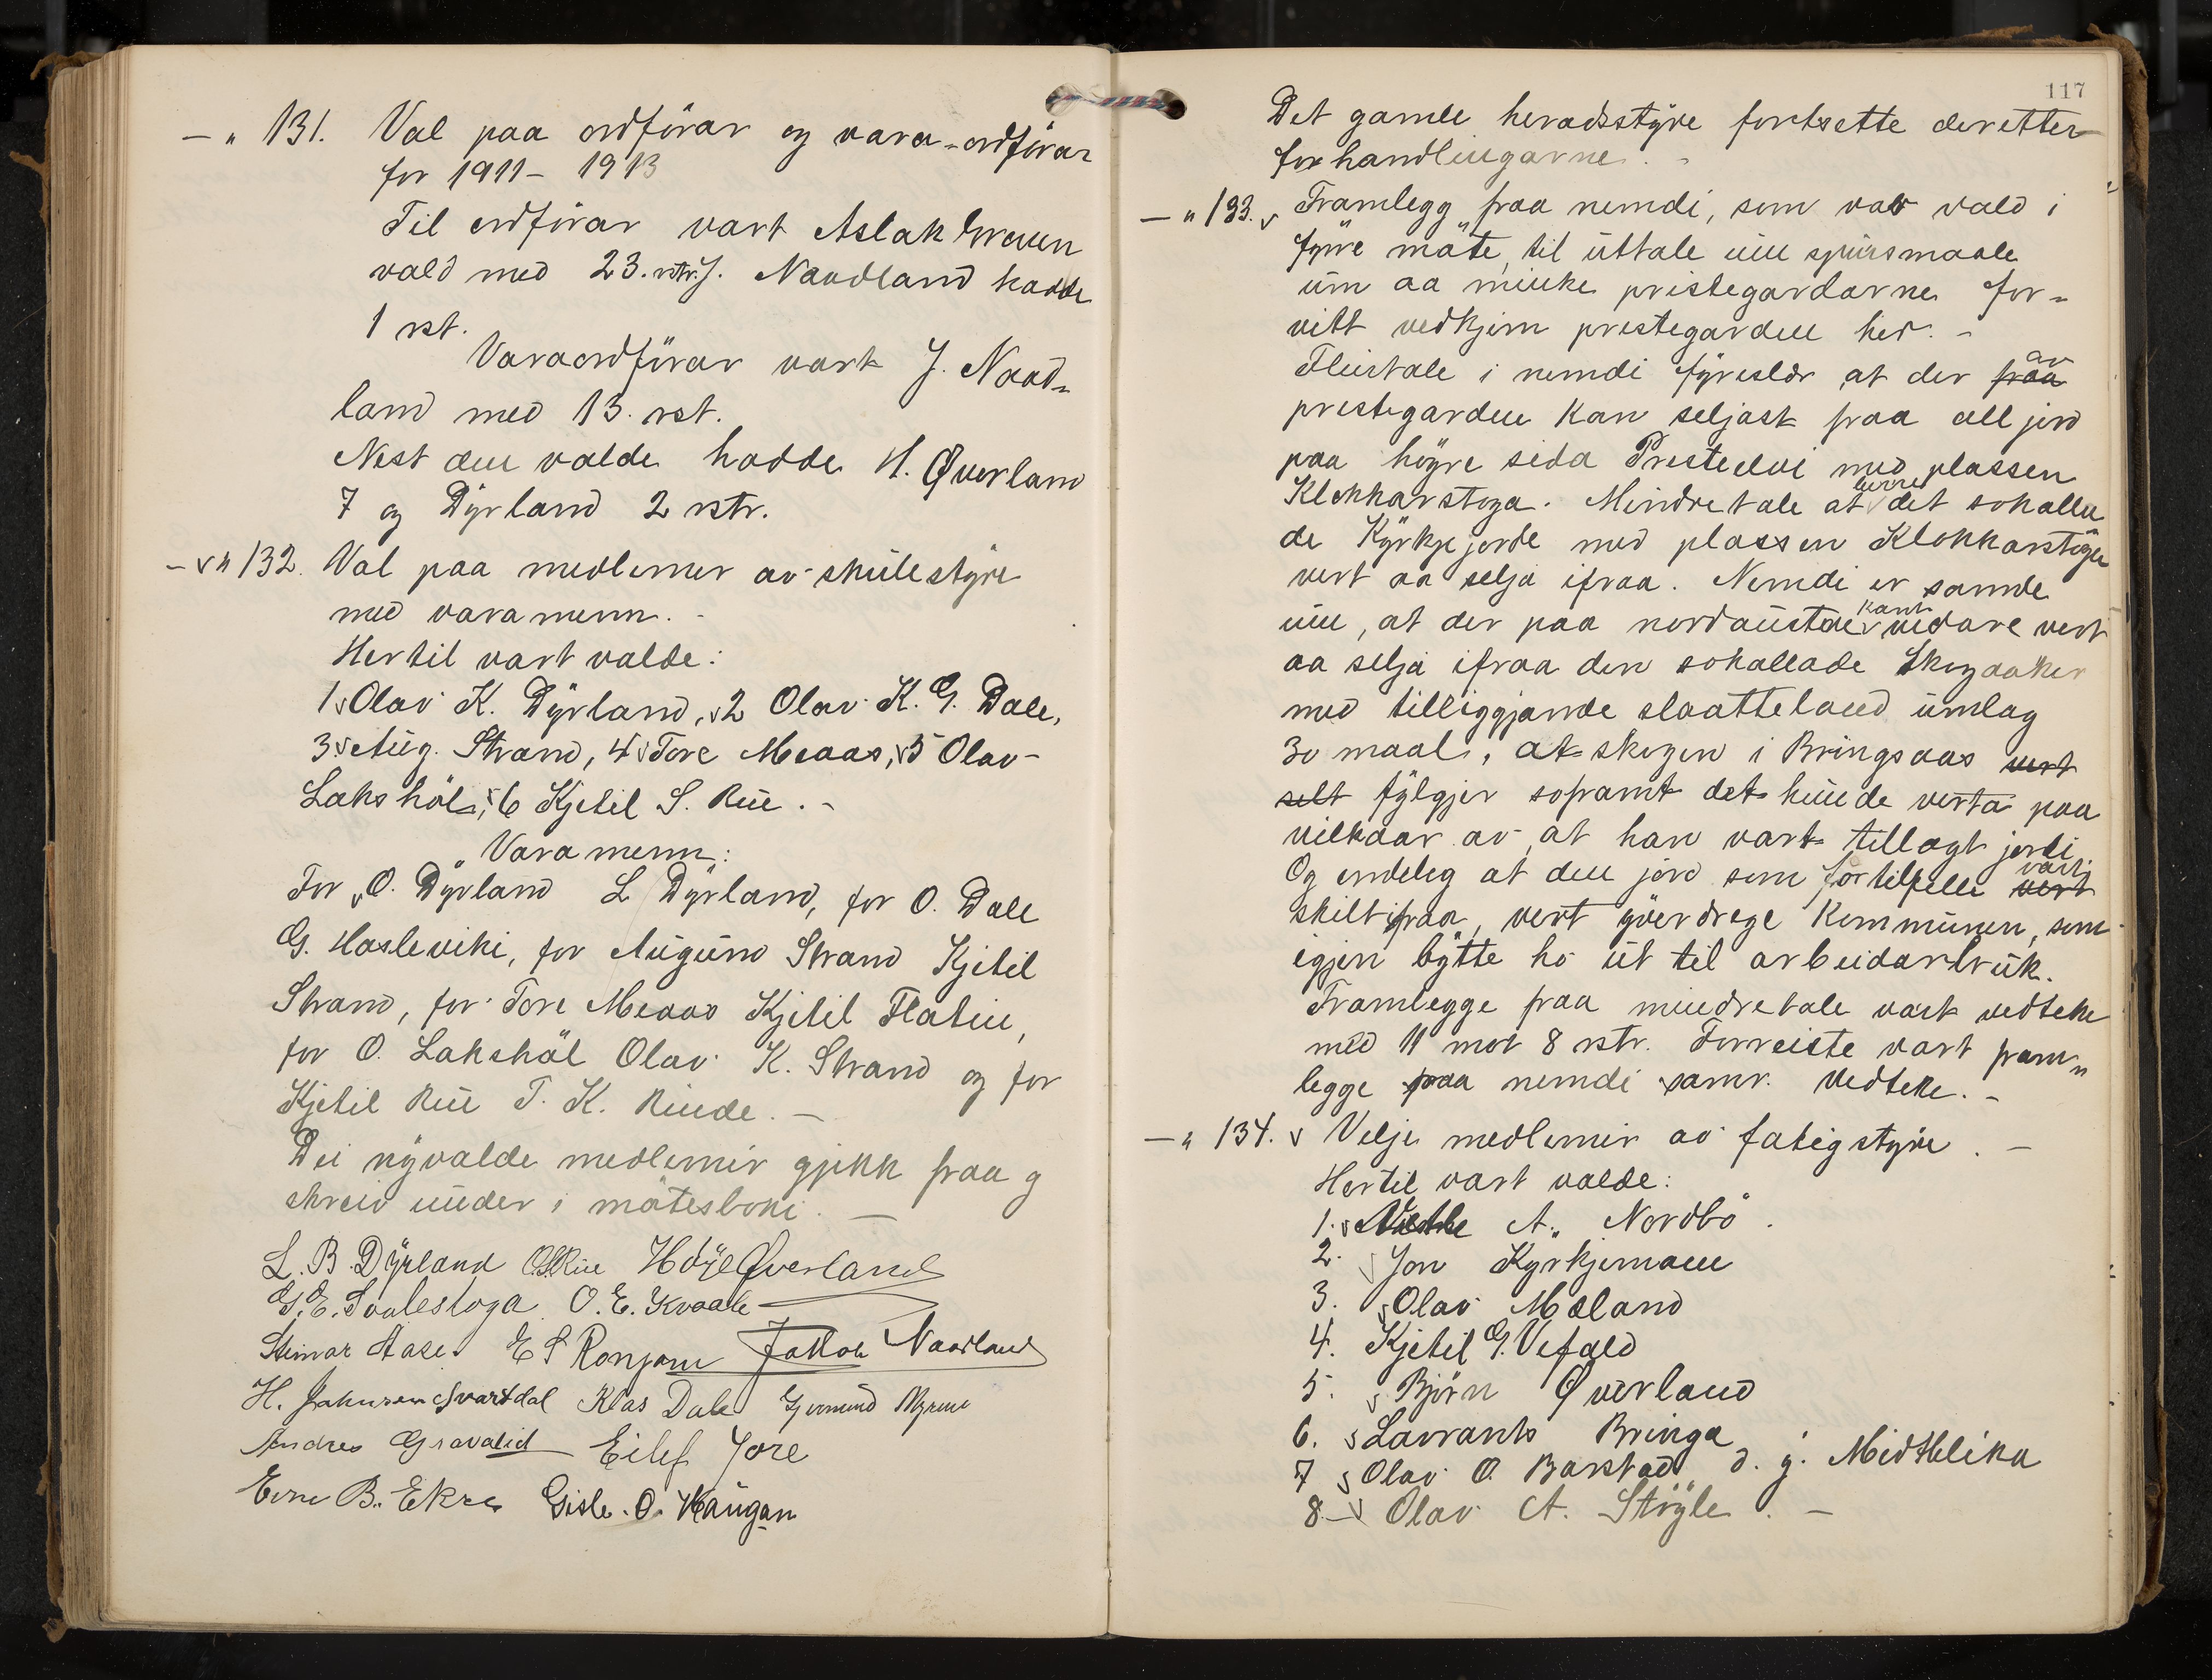 — " 131. Val paa ordförar og vara-ordförar
for 1911 – 1913
Til ordförar vart Aslak Grauen
vald med 23. rstr. J. Naadland hadde
1 rst.
Varaordförar vart J. Naad-
land med 13. rst.
Nest den valde hadde H. Øverland
7 og Dyrland 2 rstr.
— " 132. Val paa medlemer av skulestyre
med varamenn. –
Hertil vart valde:
1 Olav K. Dyrland, 2 Olav K. G. Dale,
3 Aug. Strand, 4 Tore Meaas, 5 Olav
Lakshöl, 6 Kjetil S. Rue. –
Varamenn:
For O. Dyrland L Dyrland, for O. Dale
G. Hasleviki, for Augund Strand Kjetil
Strand, for Tore Meaas Kjetil Flatin,
for O. Lakshöl Olav K. Strand og for
Kjetil Rue T. K. Rinde. —
Dei nyvalde medlemir gjekk fraa g
skreiv under i mötesboki. —
L. B. Dyrland O.S.Rue H Höye Øverland
G. E. Svalestoga O. E. Kvaale
Steinar Aase E S Ronjom Jakob Naadland
H. Svartdal Klas Dale Gjermund Myrene
Andres Gravalid Eilef Jore
Even B. Ekre Gisle. O. Haugan
117
Det gamle heradsstyre fortsette deretter
forhandlingarne. –
— " 133. Framlegg fraa nemdi, som var vald i
fyrre möte, til uttale um spursmaale
um aa minke pristegardarne for-
vitt vedkjem prestegarden her. –
Fleirtale i nemdi fyreslær at der fraa av
prestegarden kan seljast fraa all jord
paa högre sida Presteelvi med plassen
Klokkarstoga. Mindretale at berre det sokalla
de Kyrkjejorde med plassen Klokkarstoga
vert aa selja ifraa. Nemdi er samde
um, at der paa nordaustre kant vidare vert
aa selja ifraa den sokallade Skogaaker
med tilliggjande slaatteland umlag
30 maal, at skogen i Bringsaas vert
selt fylgjer soframt det kunde verta paa
vilkaar av at han vart tillagt jordi
Og endeleg at den jord som i tilfelle vert vart
skilt ifraa, vert yverdrege Kommunen, som
igjen bytte ho ut til arbeidarbruk.
Framlegge fraa mindretale vart vedteke
med 11 mot 8 rstr. Forreiste vart fram-
legge fraa nemdi samr. vedteke. –
— " 134. Velje medlemir av fatigstyre. —
Hertil vart valde:
1. A. Nordbö.
2. Jon Kyrkjemoen
3. Olav Mæland
4. Kjetil G. Vefald
5. Björn Øverland
6. Lavrants Bringa
7 Olav O. Barstad d. y. Midtbleka
8 Olav A. Stöyle. —